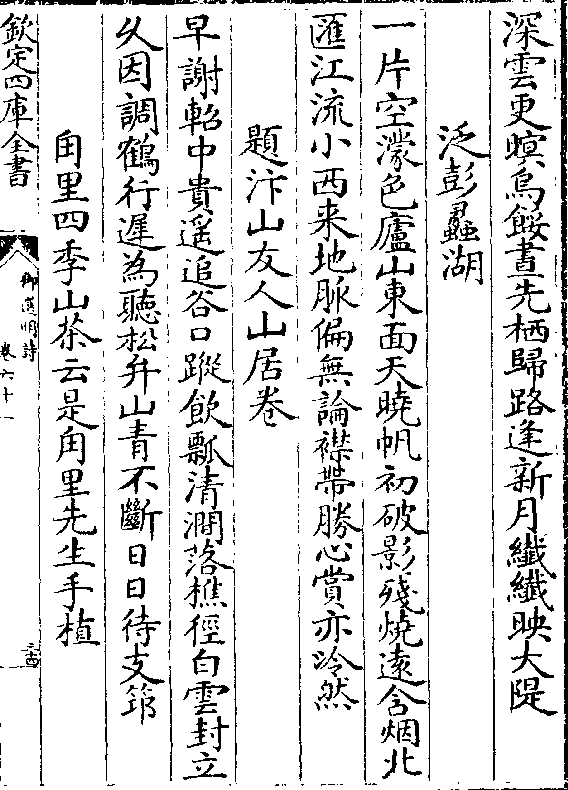 深雲更暝烏餒晝先栖歸路逢新月纖纖映大隄
泛彭蠡湖
一片空濛色廬山東面天曉帆初破影殘燒遠含烟北
匯江流小西来地脈偏無論襟帶勝心賞亦泠然
題汴山友人山居卷
早謝軺中貴遥追谷口蹤飲瓢清澗落樵徑白雲封立
久因調鶴行遲為聽松弁山青不斷日日待支筇
甪里四季山茶云是甪里先生手植
欽定四庫全書
御選明詩
卷六十一
三十四